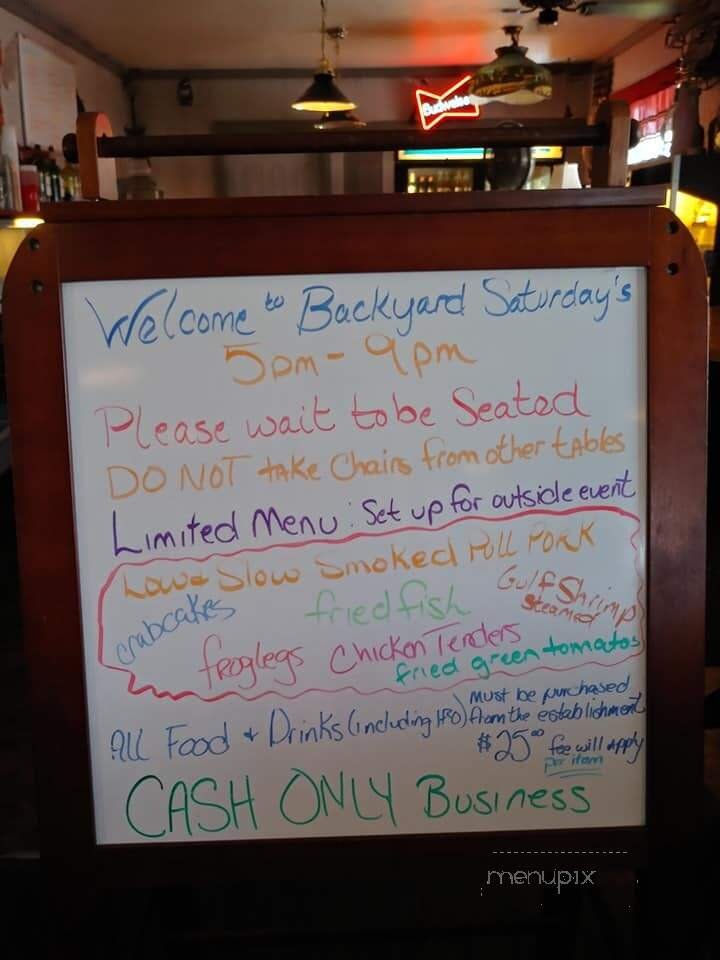 Budweiser
Welcome to Backyard Saturday's
5pm - 9pm
Please wait to be Seated
DO NOT tAKe Chairs from other tAbles
Limited Menu: Set up for outside event
Low & Slow Smoked Pull PORK
crabcakes
fried fish
Gulf Shrimp
Steamed
froglegs
Chicken Tenders
fried green tomatos
All Food + Drinks (including H2O) must be purchased
from the establishment
$25.00 fee will apply
per item
CASH ONLY Business
menupix